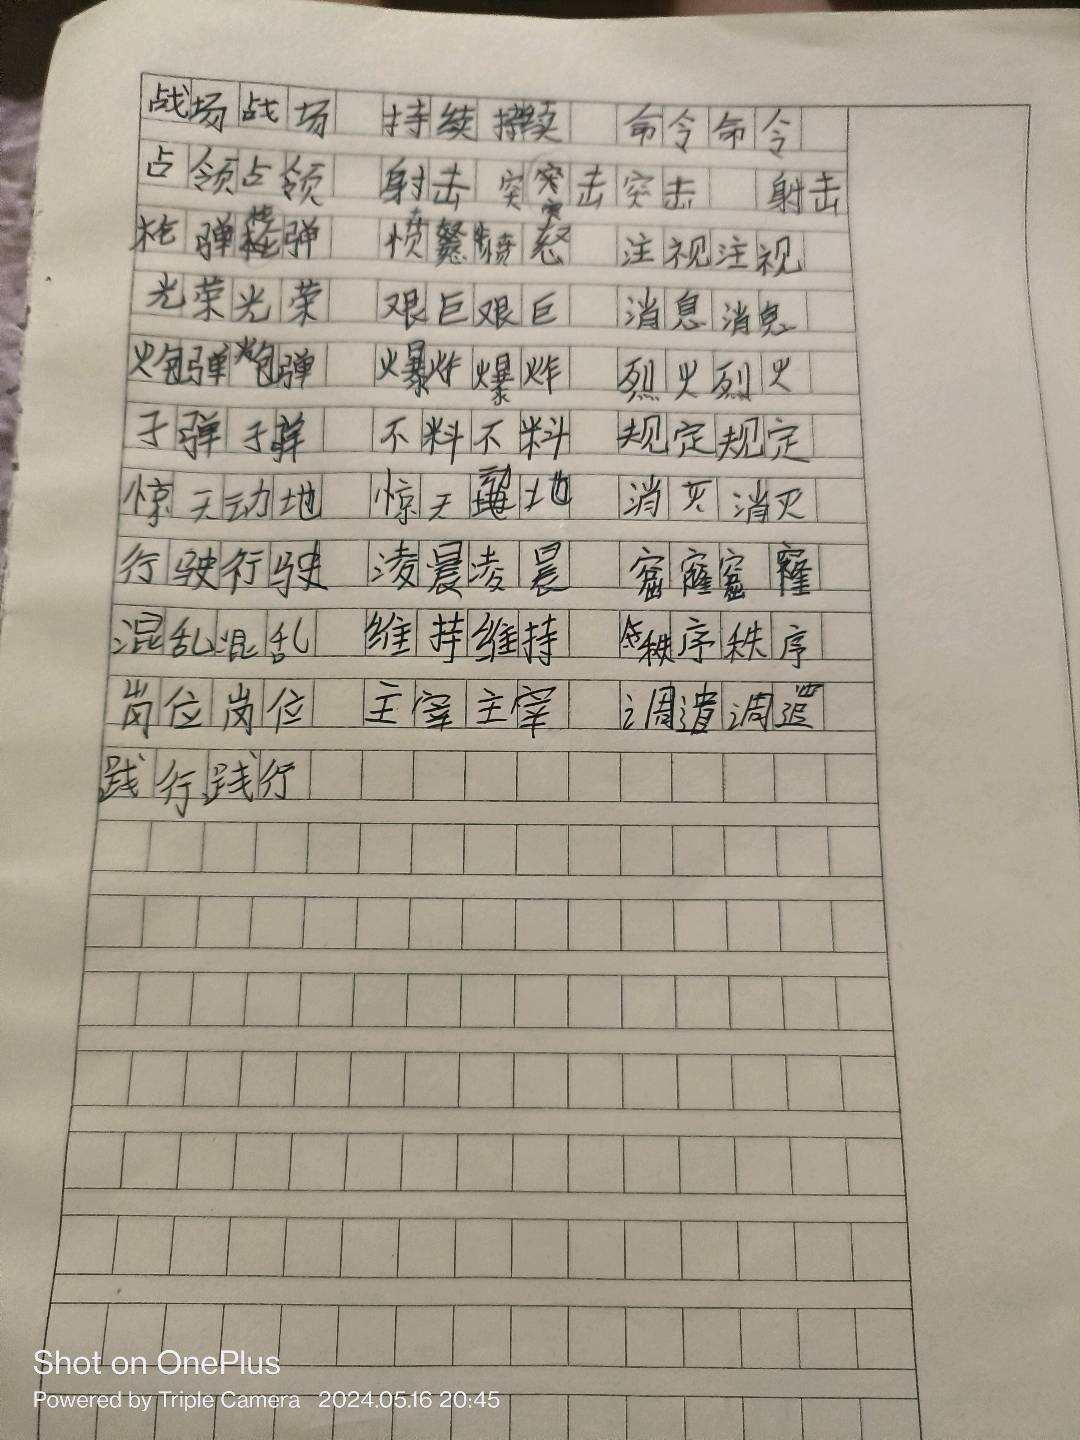 战场战场 持续持续 命令命令
占领占领 射击 突突击突击 射击
枪弹枪弹 愤怒愤怒 注视注视
光荣光荣 艰巨艰巨 消息消息
炮弹炮弹 爆炸爆炸 烈火烈火
子弹子弹 不料不料 规定规定
惊天动地 惊天动地 消灭消灭
行驶行驶 凌晨凌晨 窟窿窟窿
混乱混乱 维持维持 秩序秩序
岗位岗位 主宰主宰 调遣调遣
践行践行
Shot on OnePlus
Powered by Triple Camera 2024.05.16 20:45